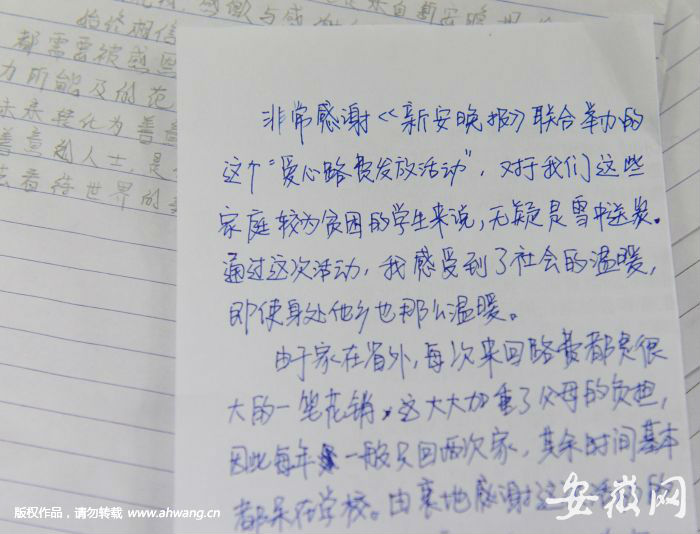 始终相信
都需要被感
力所能及的范
未来转化为善
善意的人士,是
去看待世界的
非常感谢《新安晚报》联合举办的
这个“爱心路费发放活动”,对于我们这些
家庭较为贫困的学生来说,无疑是雪中送炭.
通过这次活动,我感受到了社会的温暖,
即使身处他乡也那么温暖。
由于家在省外,每次来回路费都是很
大的一笔花销,这大大加重了父母的负担,
因此每年一般只回两次家,其余时间基本
都呆在学校。由衷地感谢这
安徽网
版权作品,请勿转载 www.ahwang.cn